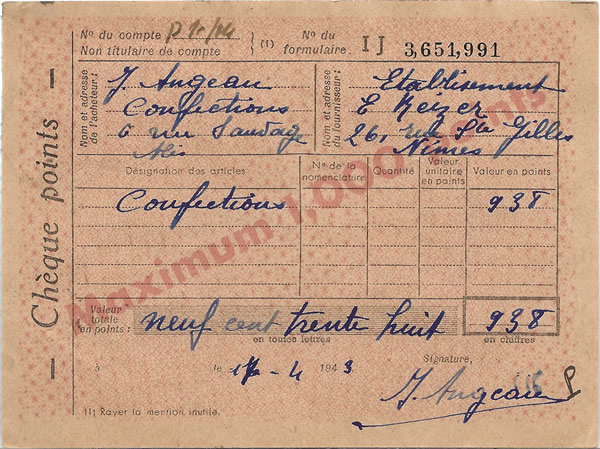 — Chèque points —
No du compte
Non titulaire de compte
} (1) {
No du formulaire : I J 3,651,991
Nom et adresse de l'acheteur :
J Augeau
Confections
6 rue Sauvage
Nom et adresse du fournisseur :
Etablisement
E Keizer
26, rue Ste Gilles
Nimes
Désignation des articles
No de la nomenclature
Quantité
Valeur unitaire en points
Valeur en points
Confections 938
Maximum 1,000 points
Valeur totale en points : neuf cent trente huit 938
en toutes lettres
en chiffres
à le 17 - 4 1943
Signature,
J. Augeau
(1) Rayer la mention inutile.